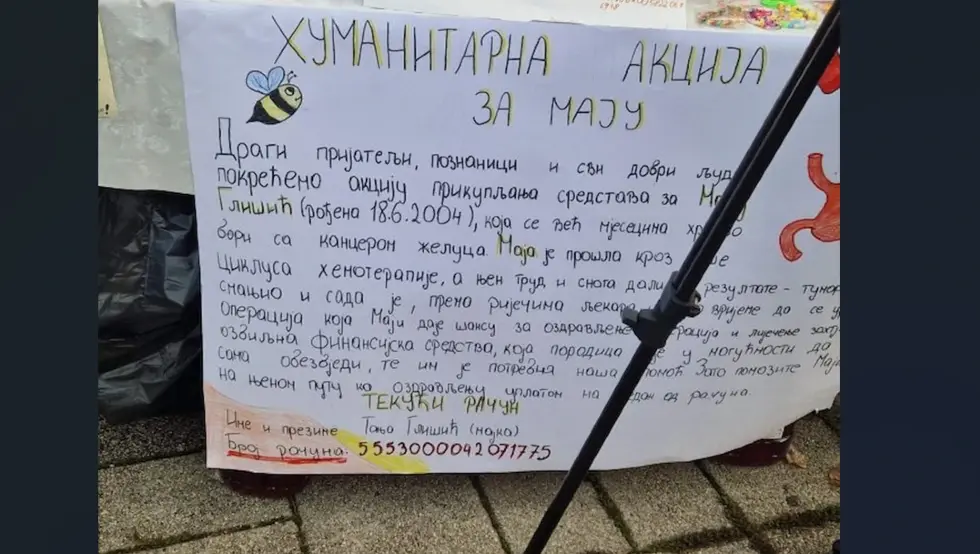 ХУМАНИТАРНА АКЦИЈА
ЗА МАЈУ
Драги пријатељи, познаници и сви добри људ
покрећемо акцију прикупљања средстава за
Глишић (рођена 18.6.2004), која се већ мјесецима
бори са канцером желуца. Маја је прошла кроз
циклуса хемотерапије, а њен труд и снага дали резултате - тумор
смањио и сада је, према ријечима љекара вријеме да се
Операција која Маји даје шансу за оздрављење и лијечење
озбиљна финансијска средства, која породица у могућности да
сама обезбједи, те им је потребна наша помоћ Зато помозите
на њеном путу ка оздрављењу уплатом на од рачуна.
ТЕКУЋИ РАЧУН
Име и презиме Тања Глишић (мајка)
Број рачуна: 5553000042071775